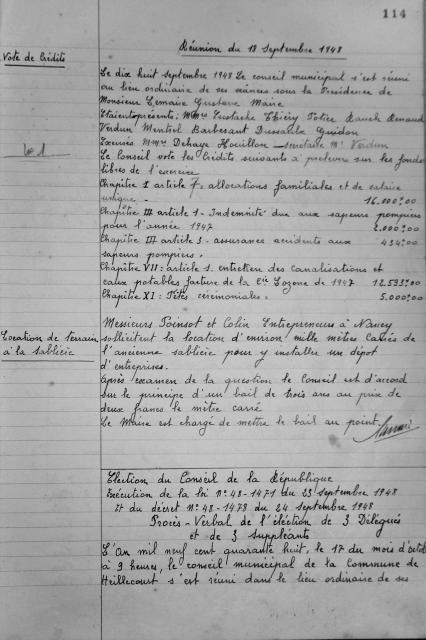 114
Réunion du 18 Septembre 1948
Vote de Crédits
Le dix huit septembre 1948 Le conseil municipal s'est réuni
au lieu ordinaire de ses séances sous la Présidence de
Monsieur Lemaire Gustave Maire
Etaient présents: M.Mrs Eustache Thiéry Renaud
Verdun Mentrel Barbesant Dussaulx Guidon
Excusés Mmrs Dehaye Houillon _ secrétaire Mr Verdun
Le Conseil vote les Crédits suivants à prélever sur les fonds
libres de l'exercice
Chapitre I article 7. allocations familiales et de salaire
unique. 16.000.00
Chapitre III article 1 - Indemnité due aux sapeurs pompiers
pour l'année 1947 2.000.00
Chapitre III article 3 - assurance accidents aux 434.00
sapeurs pompiers.
Chapitre VII: article 1. entretien des Canalisations et
eaux potables facture de la Cie Lozone de 1947 12.533.00
Chapitre XI: Fêtes cérémoniales. 5.000.00
Location de terrain
à la Sablière
Messieurs Poinsot et Colin Entrepreneurs à Nancy
sollicitent la location d'environ mille mètres Carrés de
l'ancienne sablière pour y installer un dépôt
d'entreprises.
Après examen de la question le Conseil est d'accord
sur le principe d'un bail de trois ans au prix de
deux francs le mètre carré
Le Maire est chargé de mettre le bail au point
Election du Conseil de la République
Exécution de la loi No 48-1471 du 23 septembre 1948
Et du décret No 48-1478 du 24 septembre 1948
Procès-Verbal de l'élection de 3 Délégués
et de 3 suppléants
L'An mil neuf cent quarante huit, le 17 du mois d'octob
à 9 heures, le conseil municipal de la Commune de
Heillecourt s'est réuni dans le lieu ordinaire de ses